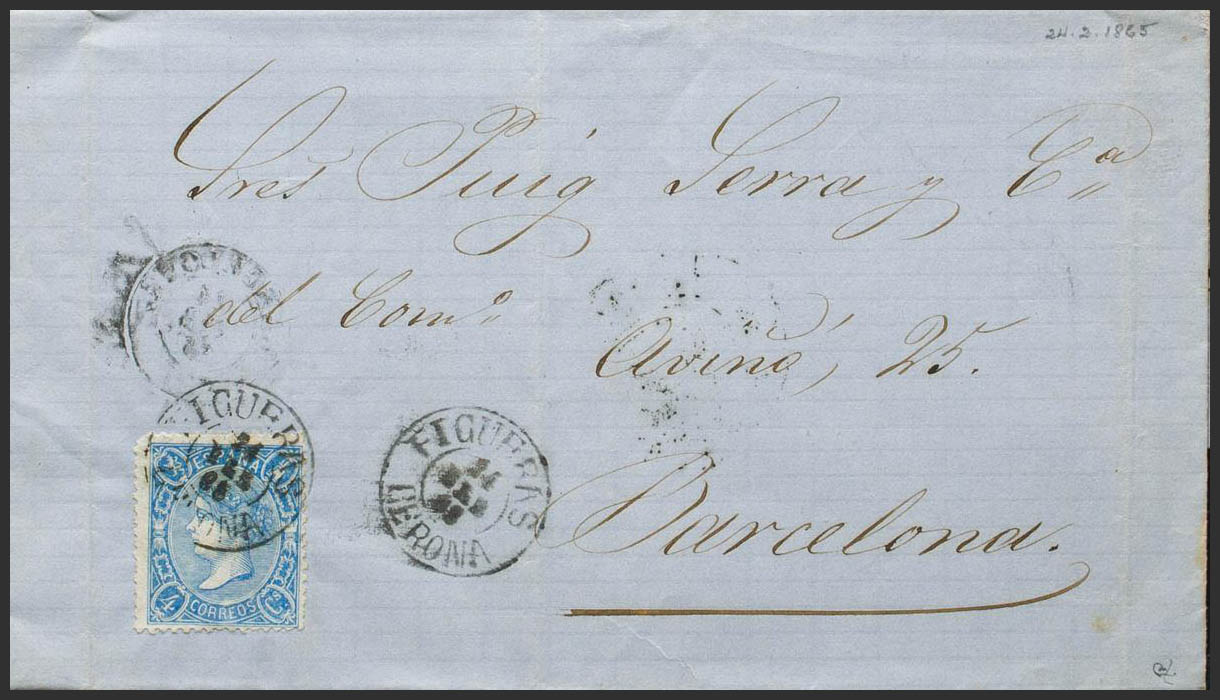 24.2.1865
Sres Puig Serra y Cª
del Comº
Aviñó, 25.
Barcelona.
FIGUERAS
GERONA
FIGUERAS
24
GERONA
ESPAÑA
4 CORREOS Cs